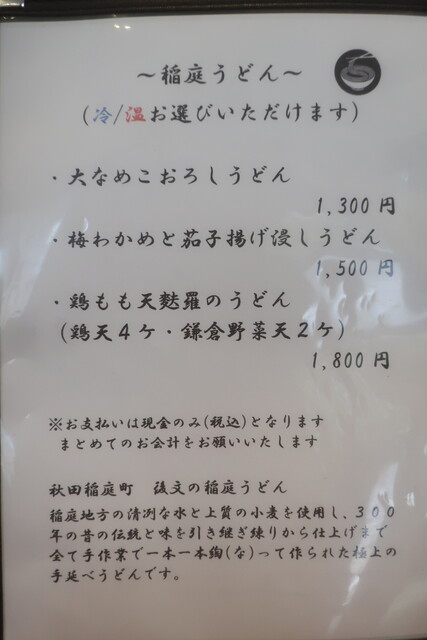 ～稲庭うどん～
(冷/温お選びいただけます)
・大なめこおろしうどん
1,300円
・梅わかめと茄子揚げ浸しうどん
1,500円
・鶏もも天麩羅のうどん
(鶏天4ケ・鎌倉野菜天2ケ)
1,800円
※お支払いは現金のみ(税込)となります
まとめてのお会計をお願いいたします
秋田稲庭町 後文の稲庭うどん
稲庭地方の清冽な水と上質の小麦を使用し、300
年の昔の伝統と味を引き継ぎ練りから仕上げまで
全て手作業で一本一本綯(な)って作られた極上の
手延べうどんです。